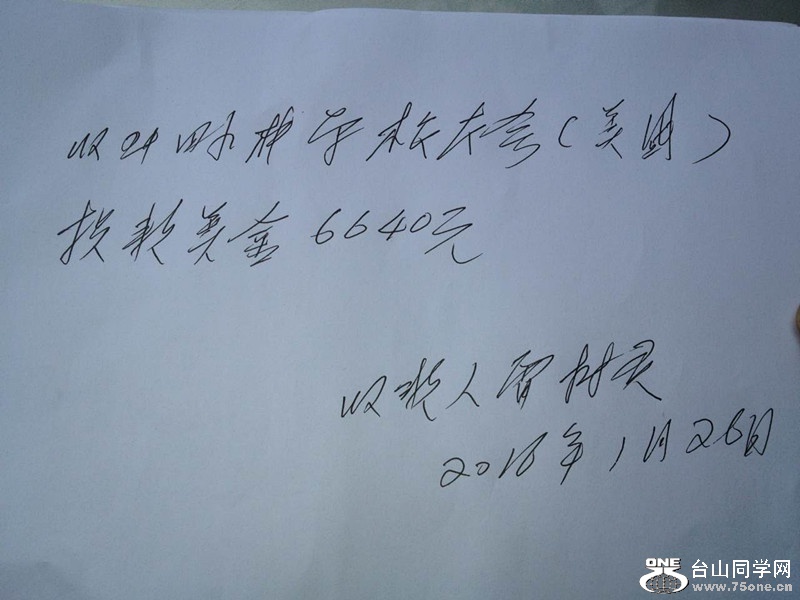 收 学校 （美国）
捐款美金6640元
收款人雷树
2016年1月26日
ONE 台山同学网
www.75one.cn